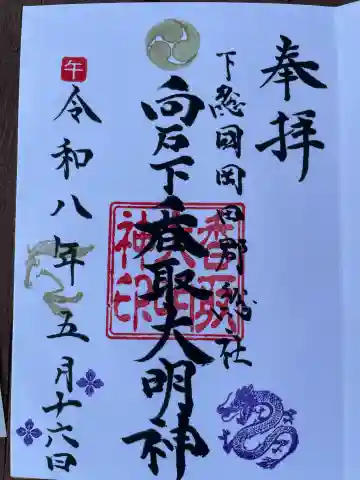 奉拝
下総国岡田郡総社
向石下香取大明神
香取大明神印
午
令和八年五月十六日